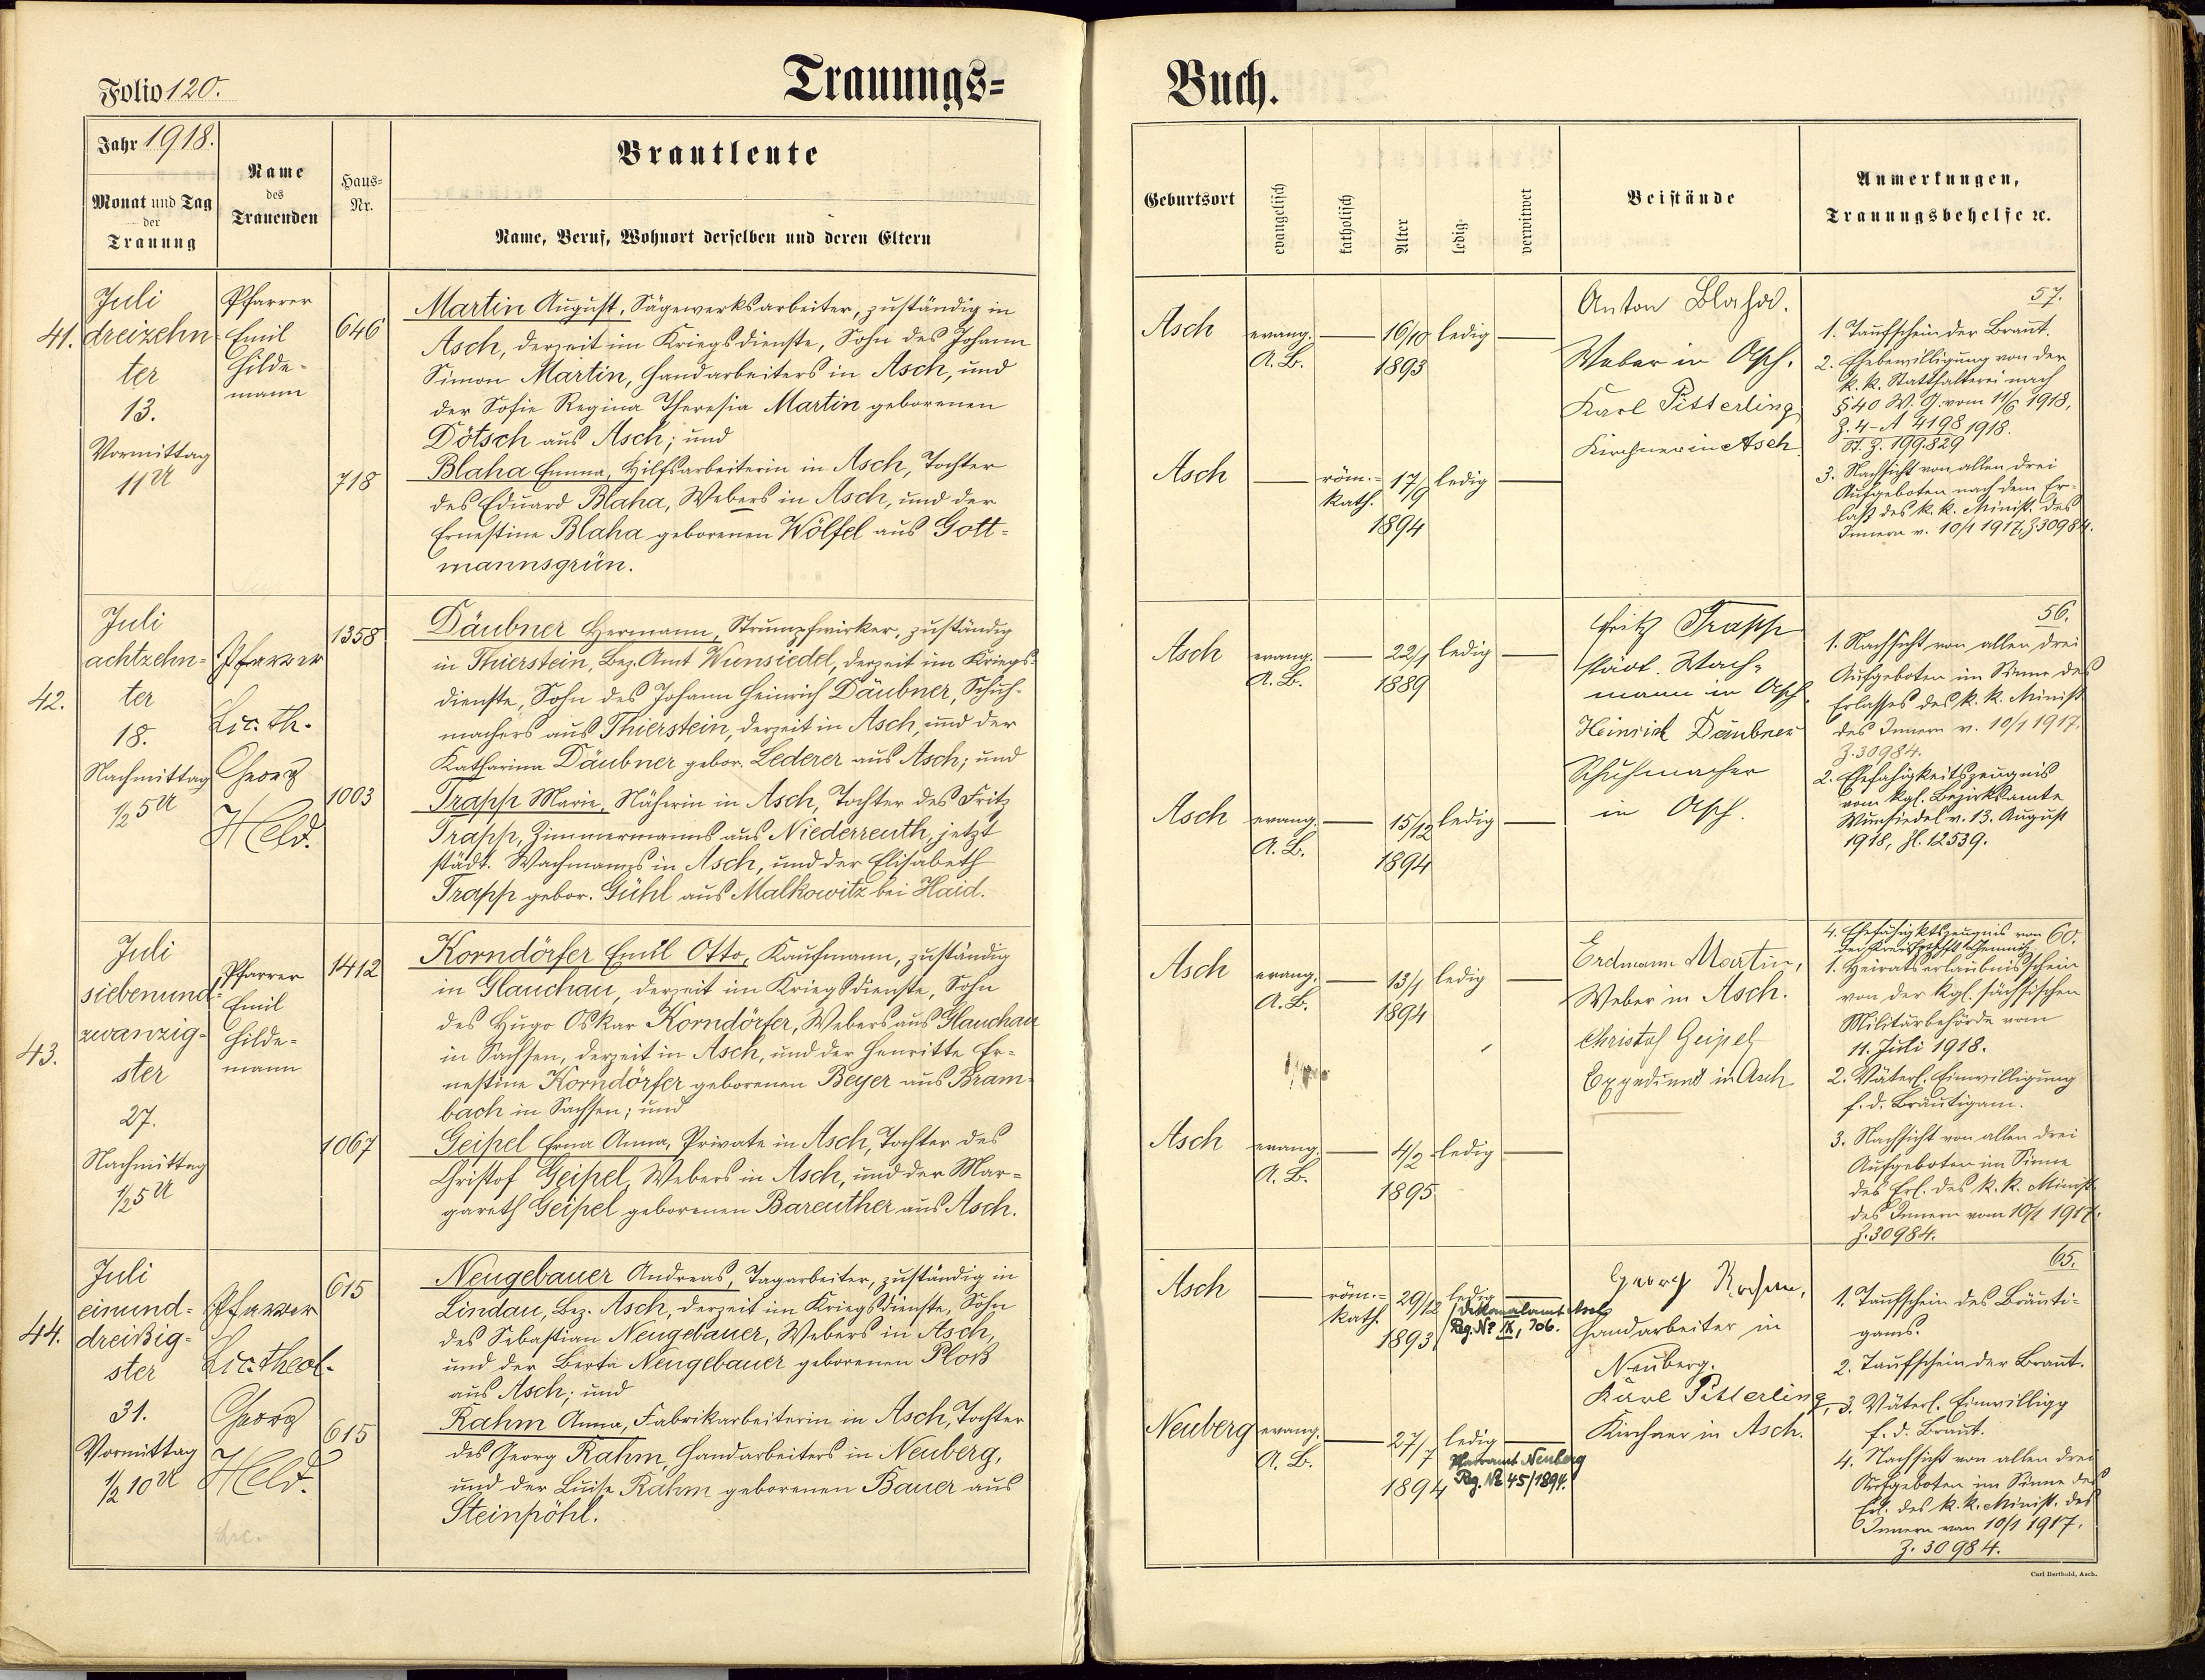 Folio 120.
Trauungs=
Buch.
Jahr 1918.
Monat und Tag
der
Trauung
Name
des
Trauenden
Haus=
Nr.
Brautleute
Name, Beruf, Wohnort derselben und deren Eltern
Geburtsort
evangelisch
katholisch
Alter
ledig
verwitwet
Beistände
Anmerkungen,
Trauungsbehelfe ꝛc.
41.
Juli
dreizehn=
ter
13.
Vormittag
11 U
Pfarrer
Emil
Hilde=
mann
646
Martin August, Sägewerksarbeiter, zuständig in
Asch, derzeit im Kriegsdienste, Sohn des Johann
Simon Martin, Handarbeiters in Asch, und
der Sofie Regina Theresia Martin geborenen
Dötsch aus Asch; und
718
Blaha Emma, Hilfsarbeiterin in Asch, Tochter
des Eduard Blaha, Webers in Asch, und der
Ernestine Blaha geborenen Wölfel aus Gott=
mannsgrün.
Asch
evang.
A. B.
16/10
1893
ledig
Asch
röm.=
kath.
17/9
1894
ledig
Anton Blaha.
Weber in Asch.
Karl Pitterling
Kirchner in Asch.
57.
1. Taufschein der Braut.
2. Ehebewilligung von der
k. k. Statthalterei nach
§ 40 W. G. vom 11/6 1918,
Z. 4-A 4198 1918.
St. Z. 199.829
3. Nachsicht von allen drei
Aufgeboten nach dem Er=
laß des k. k. Minist. des
Innern v. 10/1 1917, Z 30984.
42.
Juli
achtzehn=
ter
18.
Nachmittag
1/2 5 U
Pfarrer
Lic. th.
Georg
Held.
1358
Däubner Hermann, Strumpfwirker, zuständig
in Thierstein, Bez. Amt Wunsiedel, derzeit im Kriegs=
dienste, Sohn des Johann Heinrich Däubner, Schuh=
machers aus Thierstein, derzeit in Asch, und der
Katharina Däubner gebor. Lederer aus Asch; und
1003
Trapp Marie, Näherin in Asch, Tochter des Fritz
Trapp, Zimmermanns aus Niederreuth, jetzt
städt. Wachmanns in Asch, und der Elisabeth
Trapp gebor. Gühl aus Malkowitz bei Haid.
Asch
evang.
A. B.
22/1
1889
ledig
Asch
evang.
A. B.
15/12
1894
ledig
Fritz Trapp
städt. Wach=
mann in Asch.
Heinrich Däubner
Schuhmacher
in Asch.
56.
1. Nachsicht von allen drei
Aufgeboten im Sinne des
Erlasses des k. k. Minist.
des Innern v. 10/1 1917.
Z. 30984.
2. Ehefähigkeitszeugnis
vom kgl. Bezirksamte
Wunsiedel v. 13. August
1918, Zl. 12539.
43.
Juli
siebenund=
zwanzig=
ster
27.
Nachmittag
1/2 5 U
Pfarrer
Emil
Hilde=
mann
1412
Korndörfer Emil Otto, Kaufmann, zuständig
in Glauchau, derzeit im Kriegsdienste, Sohn
des Hugo Oskar Korndörfer, Webers aus Glauchau
in Sachsen, derzeit in Asch, und der Henritte Er=
nestine Korndörfer geborenen Beyer aus Bram=
bach in Sachsen; und
1067
Geipel Erna Anna, Private in Asch, Tochter des
Christof Geipel, Webers in Asch, und der Mar=
gareth Geipel geborenen Bareuther aus Asch.
Asch
evang.
A. B.
13/1
1894
ledig
Asch
evang.
A. B.
4/2
1895
ledig
Erdmann Martin,
Weber in Asch.
Christof Geipel
Expedient in Asch
60.
4. Ehefähigktszeugnis von
der Chemnitz.
1. Heiratserlaubnisschein
von der kgl. sächsischen
Militärbehörde vom
11. Juli 1918.
2. Väterl. Einwilligung
f. d. Bräutigam.
3. Nachsicht von allen drei
Aufgeboten im Sinne
des Erl. des k. k. Minist.
des Innern vom 10/1 1917.
Z. 30984.
44.
Juli
einund=
dreißig=
ster
31.
Vormittag
1/2 10 U
Pfarrer
Lic. theol.
Georg
Held.
615
Neugebauer Andreas, Tagarbeiter, zuständig in
Lindau, Bez. Asch, derzeit im Kriegsdienste, Sohn
des Sebastian Neugebauer, Webers in Asch,
und der Berta Neugebauer geborenen Ploß
aus Asch; und
615
Rahm Anna, Fabrikarbeiterin in Asch, Tochter
des Georg Rahm, Handarbeiters in Neuberg,
und der Luise Rahm geborenen Bauer aus
Steinpöhl.
Asch
röm.=
kath.
29/12
1893
ledig
Dekanalamt Asch
Reg. Nr IX, 706.
Neuberg
evang.
A. B.
27/7
1894
ledig
Pfarramt Neuberg
Reg. Nr 45/1894.
Georg Rahm,
Handarbeiter in
Neuberg.
Karl Pitterling,
Kirchner in Asch.
65.
1. Taufschein des Bräuti=
gams.
2. Taufschein der Braut.
3. Väterl. Einwilligg
f. d. Braut.
4. Nachsicht von allen drei
Aufgeboten im Sinne des
Erl. des k. k. Minist. des
Innern vom 10/1 1917.
Z. 30984.
Carl Berthold, Asch.